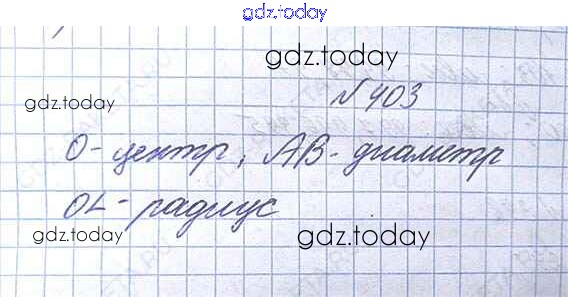 gdz.today
gdz.today
№ 403
gdz.today
O - центр, AB - диаметр
OL - радиус
gdz.today
gdz.today